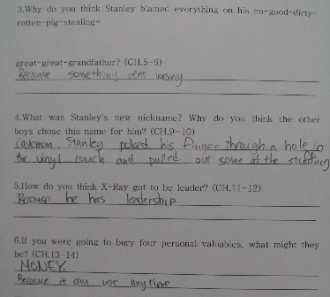 3.Why do you think Stanley blamed everything on his no-good-dirty-
rotten-pig-stealing-
great-great-grandfather? (CH.5-6)
Because something went wrong
4.What was Stanley's new nickname? Why do you think the other
boys chose this name for him? (CH.9-10)
Caveman. Stanley poked his finger through a hole in
the vinyl couch and pulled out some of the stuffing
5.How do you think X-Ray got to be leader? (CH.11-12)
Because he has leadership
6.If you were going to bury four personal valuables, what might they
be? (CH.13-14)
MONEY
Because it can use anytime